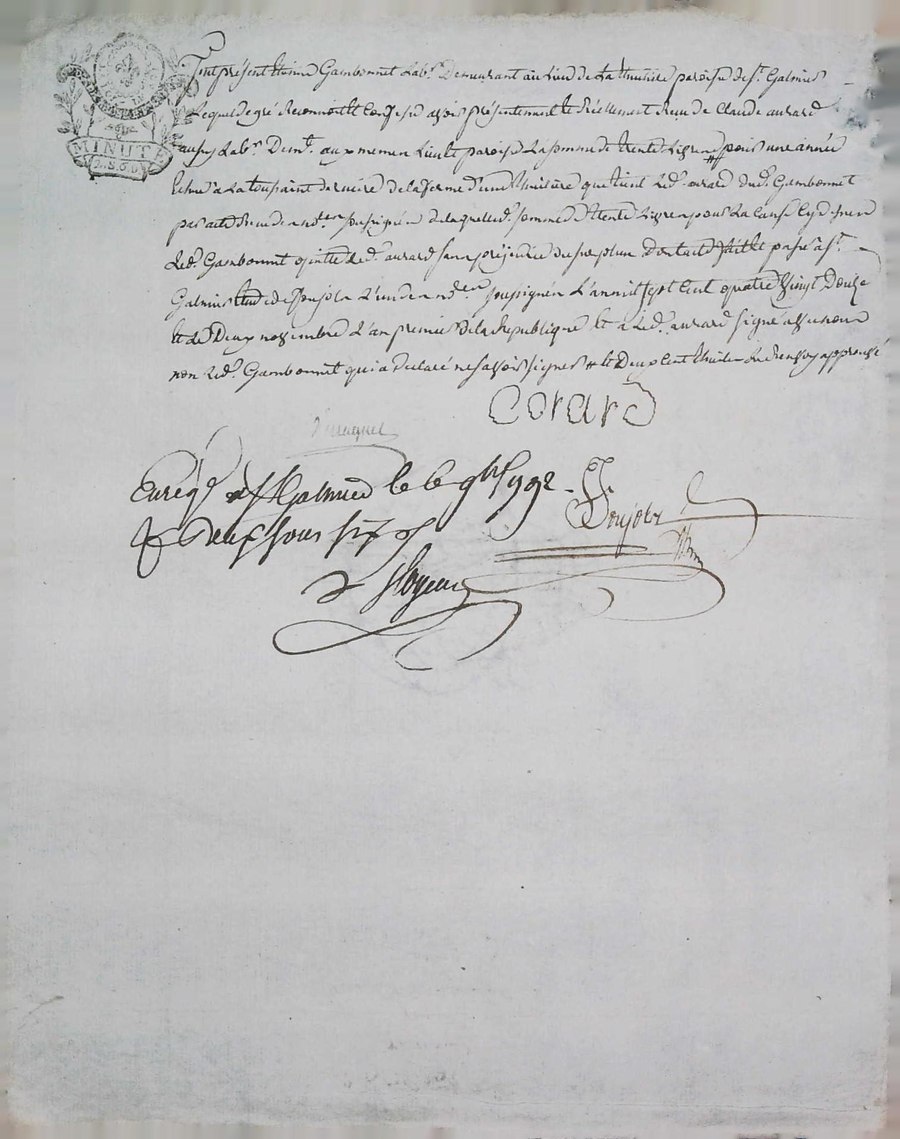 MINUTE
fut présent Etienne Gambonnet Lab.r Demeurant au Lieu de La paroisse de s.t Galmier
Lequel de gré Reconnoit et Confesse avoir présentement et Réellement Reçu de Claude avrard
aussy Lab.r Dem.t aux memes Lieu et paroisse La somme de trente Livres # pour une année
Echue a La toussaint derniere de la ferme d'une que tient Led. avrard dud. Gambonnet
par acte Reçu de nd.res soussigné de laquelle d. somme de trente Livres pour La Cause Cy dessus
Led. Gambonnet quitte Led. avrard sans préjudice du surplus Dont acte fait et passé a s.t
Galmier Etude de Jonjole L'un de nd.res soussignés L'an mil sept Cent quatre vingt Douze
Et Le Deux novembre L'an premier de la Republique Et a Led. avrard signé avec nous
non Led. Gambonnet qui a declaré ne savoir signer # et Deux Cent Livre Le Renvoy approuvé
avard
Enreg.é a St Galmier le 6 9bre 1792
R deux sous six d
Jonjole